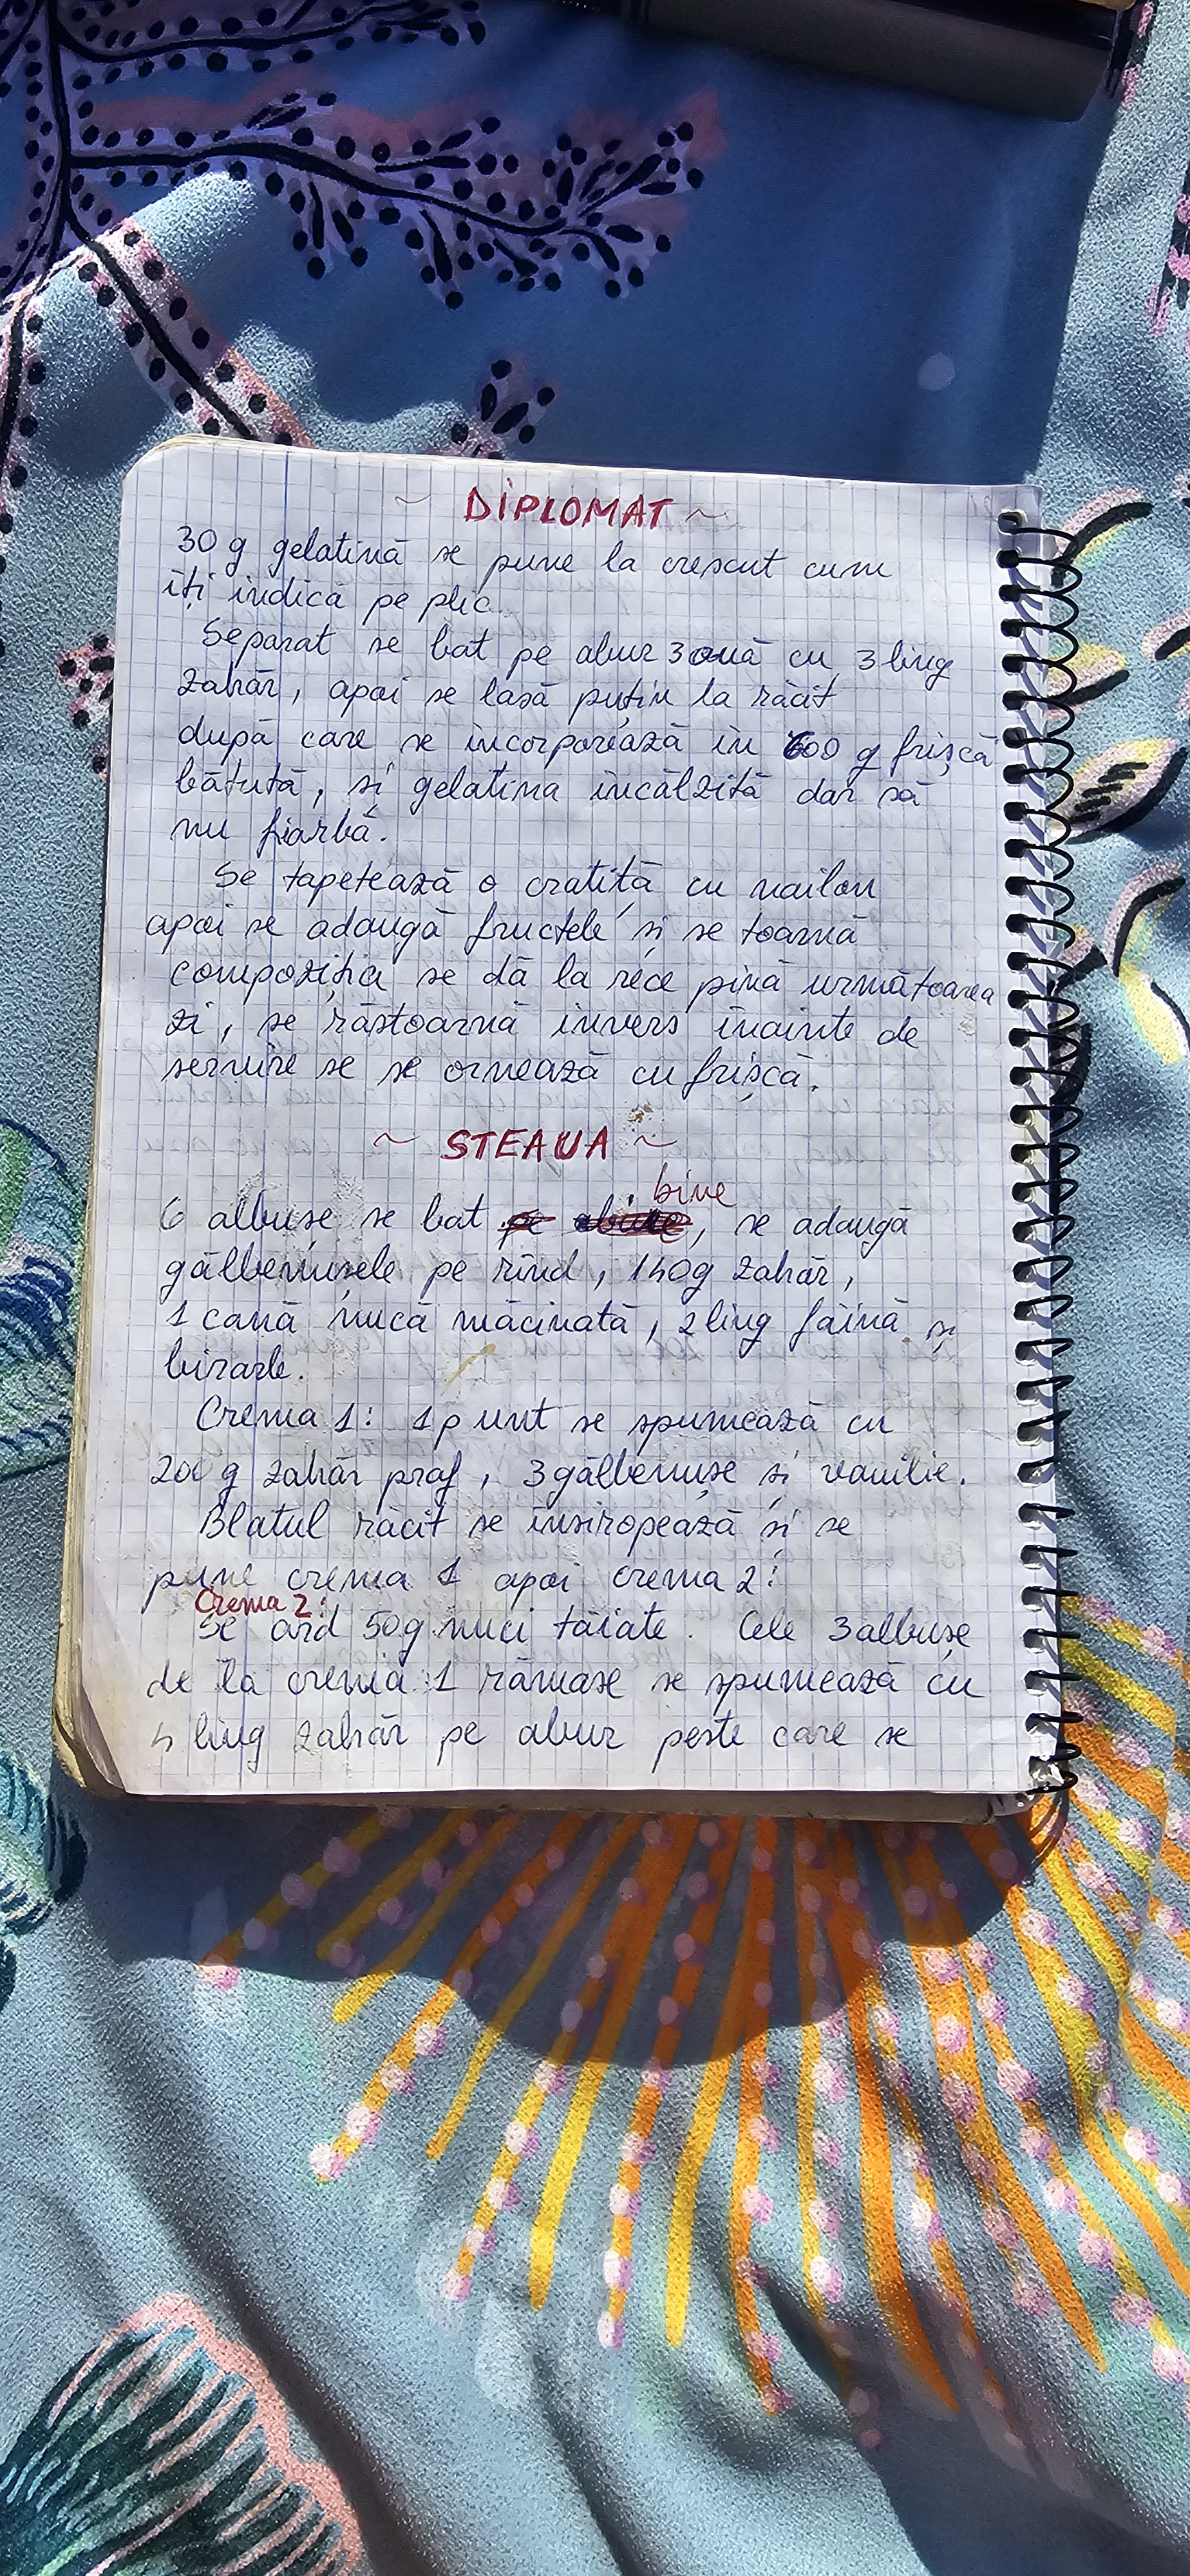 ~ DIPLOMAT ~
30 g gelatină se pune la crescut cum
iți indică pe plic.
Separat se bat pe abur 3 ouă cu 3 ling
zahăr, apoi se lasă puțin la răcit
după care se incorporează in 600 g frișcă
bătută, si gelatina incălzită dar să
nu fiarbă.
Se tapetează o cratiță cu nailon
apoi se adaugă fructele si se toarnă
compoziția se dă la rece pină următoarea
zi, se răstoarnă invers inainte de
servire se se ornează cu frișcă.
~ STEAUA ~
bine
6 albușe se bat , se adaugă
gălbenușele pe rind, 140g zahăr,
1 cană nucă măcinată, 2 ling făină și
Crema 1: 1 p unt se spumează cu
200 g zahăr praf, 3 gălbenușe si vanilie.
Blatul răcit se insiropează si se
pune crema 1 apoi crema 2:
Crema 2:
Se ard 50g nuci tăiate. Cele 3 albușe
de la crema 1 rămase se spumează cu
4 ling zahăr pe abur peste care se